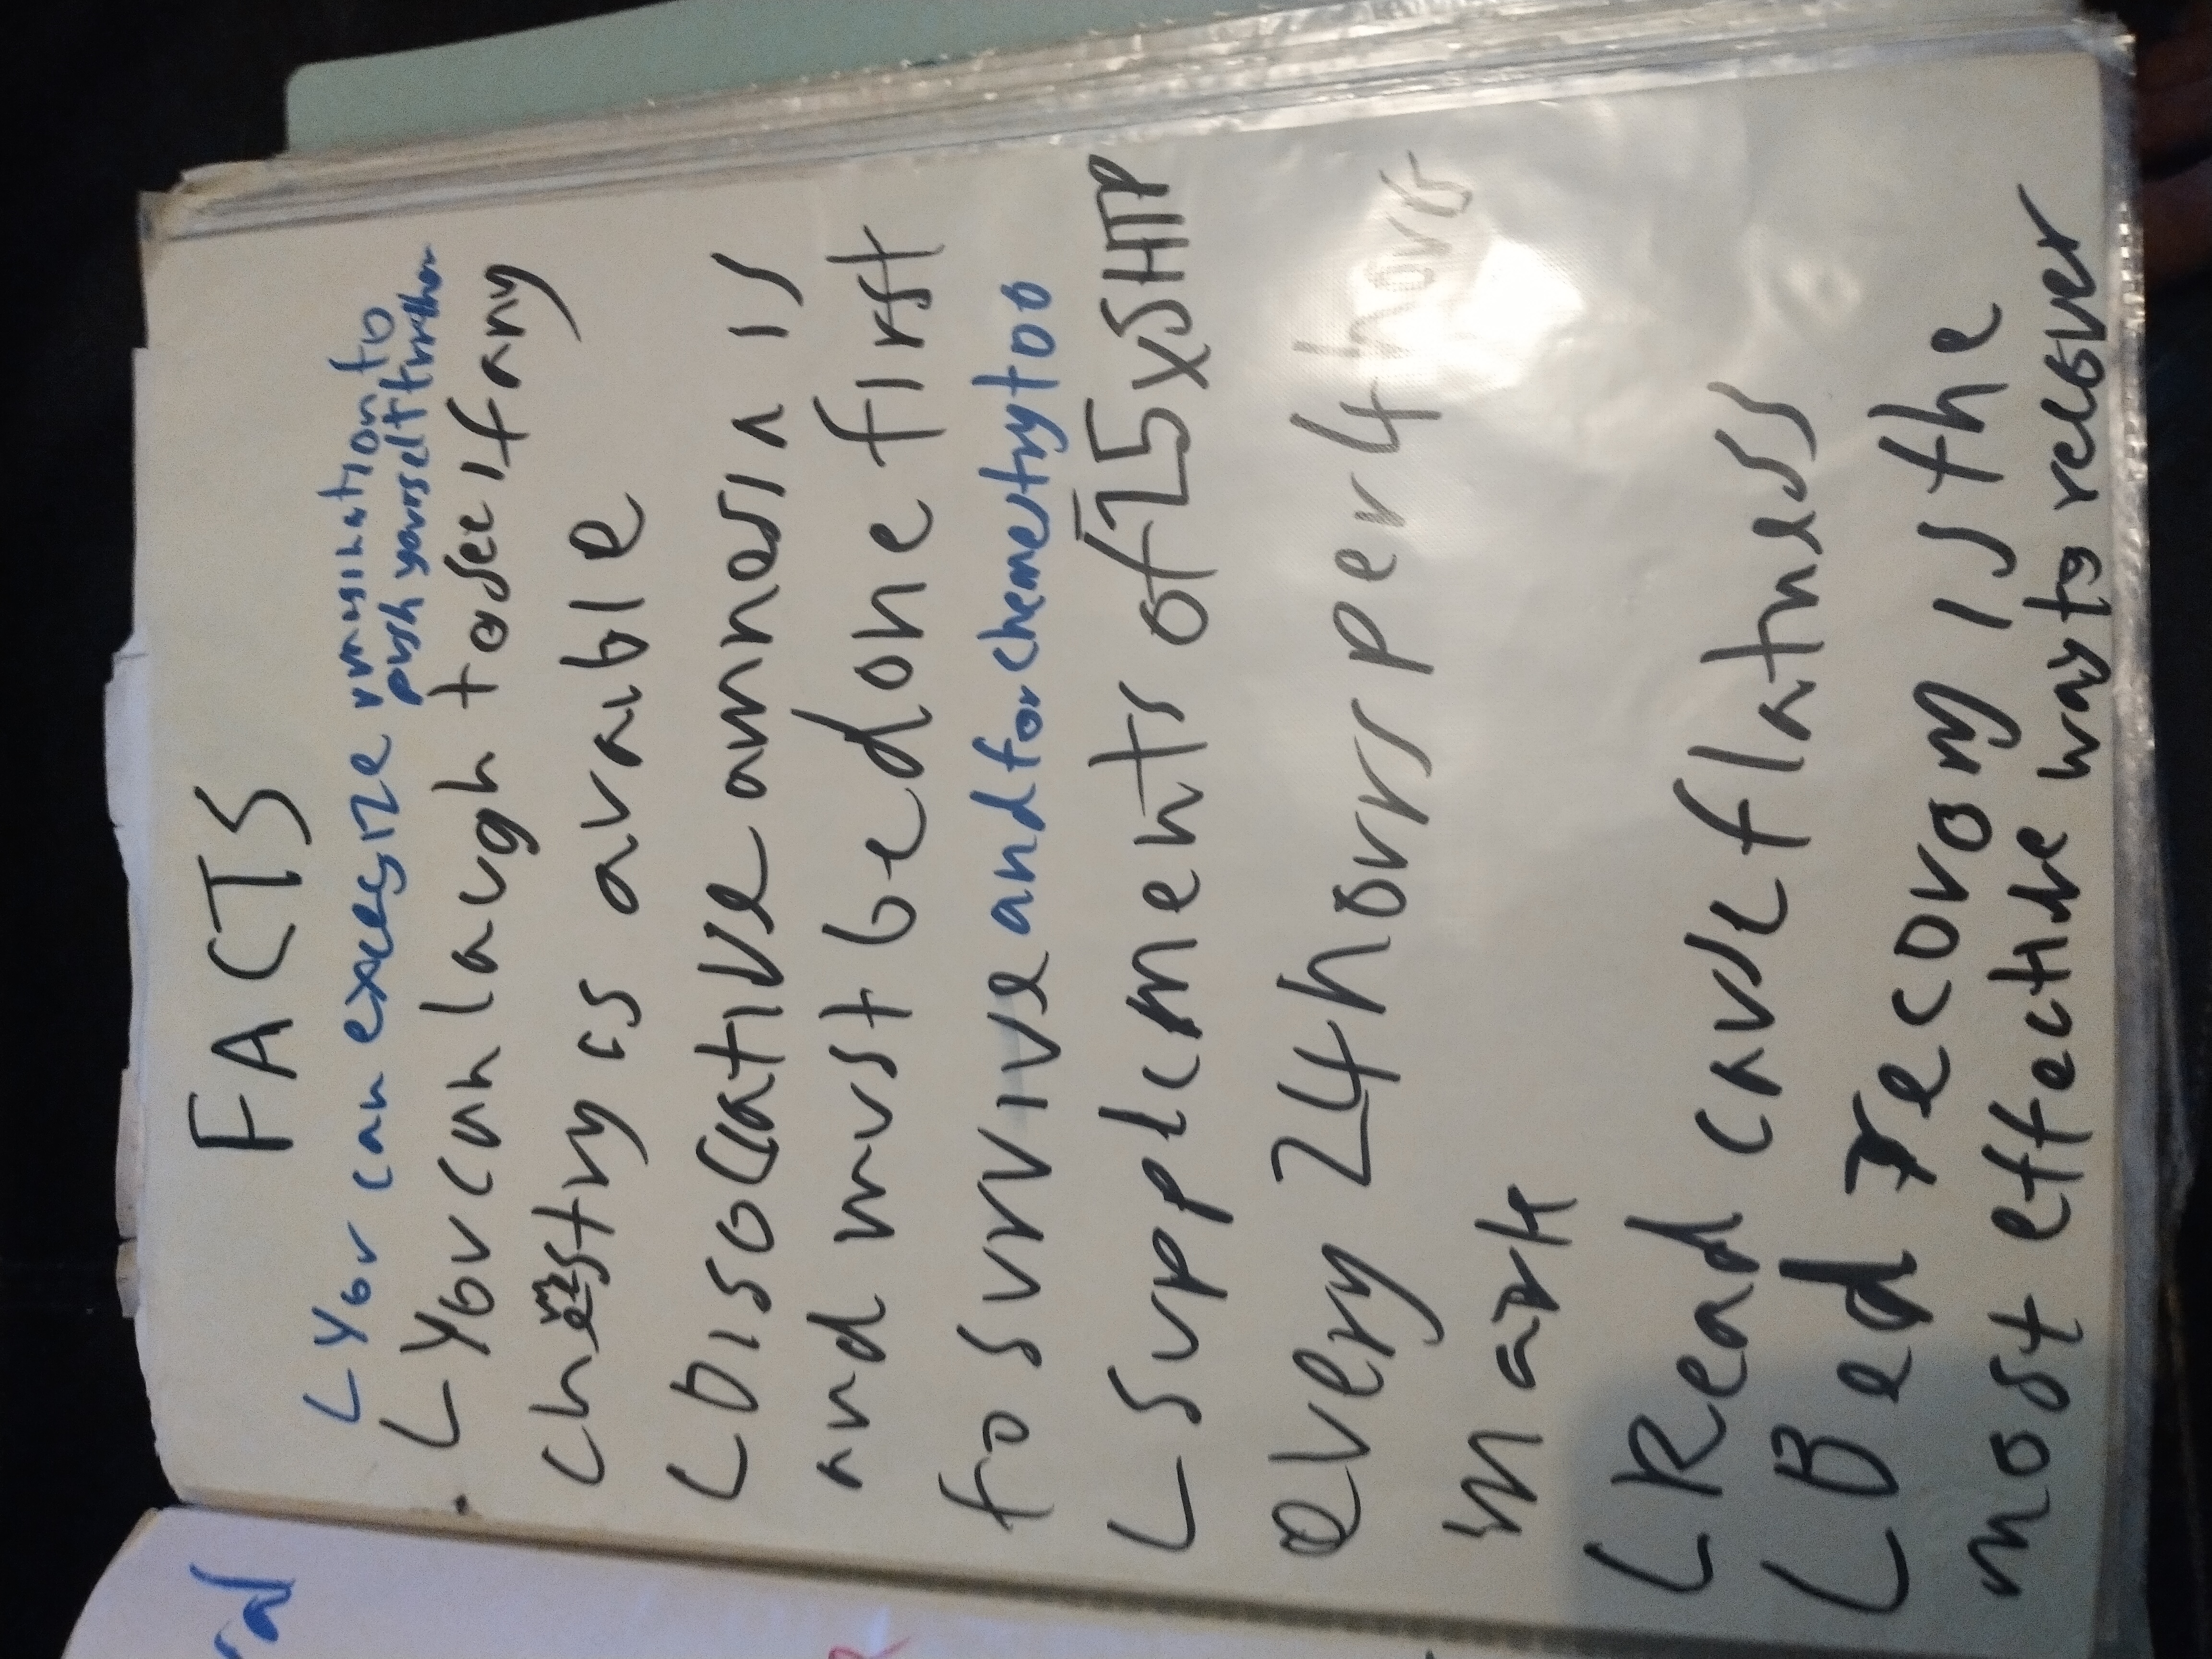 FACTS
L You can excersize rumination to
push yourself further
L You can laugh to see if any
chemestry is avaible
L Disociative amnesia is
and must be done first
to survive and for chemertry too
L Supplements of 25x5HTP
every 24 hours per 4 hours
mark
L Read cause flatness
L Bed recovory is the
most effective way to recover
rd